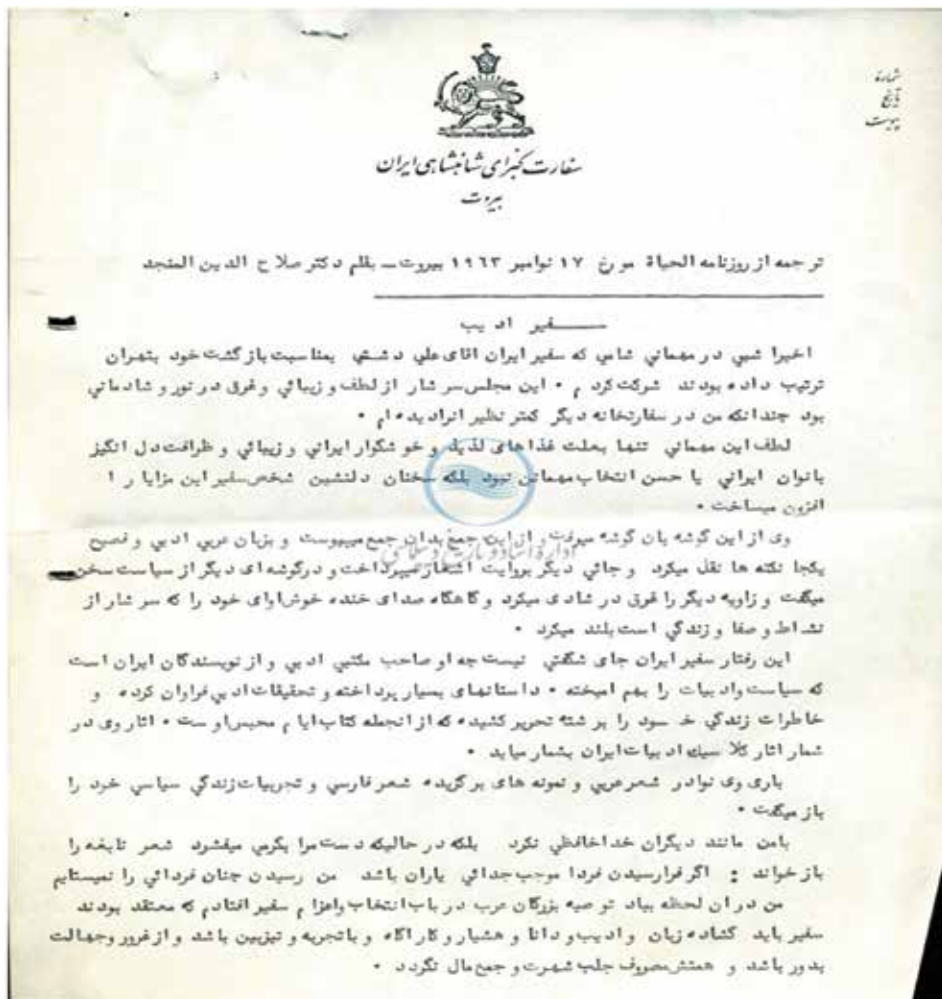 شماره
تاریخ
پیوست
سفارت کبرای شاهنشاهی ایران
بیروت
ترجمه از روزنامه الحیاة مورخ ۱۷ نوامبر ۱۹۶۳ بیروت ـ بقلم دکتر صلاح الدین المنجد
سفیر ادیب
اخیرا شبي در مهماني شامي که سفیر ایران اقاي علي دشتي بمناسبت بازگشت خود بتهران
ترتیب داده بودند شرکت کردم • این مجلس سرشار از لطف و زیبائي و غرق در نور و شادماني
بود چندانکه من در سفارتخانه دیگر کمتر نظیر انرا دیده ام •
لطف این مهماني تنها بعلت غذاهاي لذیذ و خوشگوار ایراني و زیبائي و ظرافت دل انگیز
بانوان ایراني یا حسن انتخاب مهمانان نبود بلکه سخنان دلنشین شخص سفیر این مزایا را
افزون میساخت •
وی از این گوشه بان گوشه میرفت و از این جمع بدان جمع میپیوست و بزبان عربي ادبي و فصیح
یکجا نکته ها نقل میکرد و جائي دیگر بروایت اشعار میپرداخت و در گوشه ای دیگر از سیاست سخن
میگفت و زاویه دیگر را غرق در شادی میکرد و گاهگاه صدای خنده خوش اوای خود را که سرشار از
نشاط و صفا و زندگي است بلند میکرد •
این رفتار سفیر ایران جای شگفتي نیست چه او صاحب مکتبي ادبي و از نویسندگان ایران است
که سیاست و ادبیات را بهم امیخته • داستانهای بسیار پرداخته و تحقیقات ادبي فراوان کرده و
خاطرات زندگي خسود را برشته تحریر کشیده که از انجمله کتاب ایام محبس اوست • اثار وی در
شمار اثار کلاسیك ادبیات ایران بشمار میاید •
باری وی نوادر شعر عربي و نمونه های برگزیده شعر فارسي و تجربیات زندگي سیاسي خود را
باز میگفت •
بامن مانند دیگران خداحافظي نکرد بلکه در حالیکه دست مرا بگرمي میفشرد شعر نابغه را
باز خواند : اگر فرارسیدن فردا موجب جدائي یاران باشد من رسیدن چنان فردائي را نمیستایم
من در ان لحظه بیاد توصیه بزرگان عرب در باب انتخاب و اعزام سفیر افتادم که معتقد بودند
سفیر باید گشاده زبان و ادیب و دانا و هشیار و کاراگاه و باتجربه و تیزبین باشد و از غرور و جهالت
بدور باشد و همتش مصروف جلب شهرت و جمع مال نگردد •
اداره اسناد و تاریخ دیپلماسی